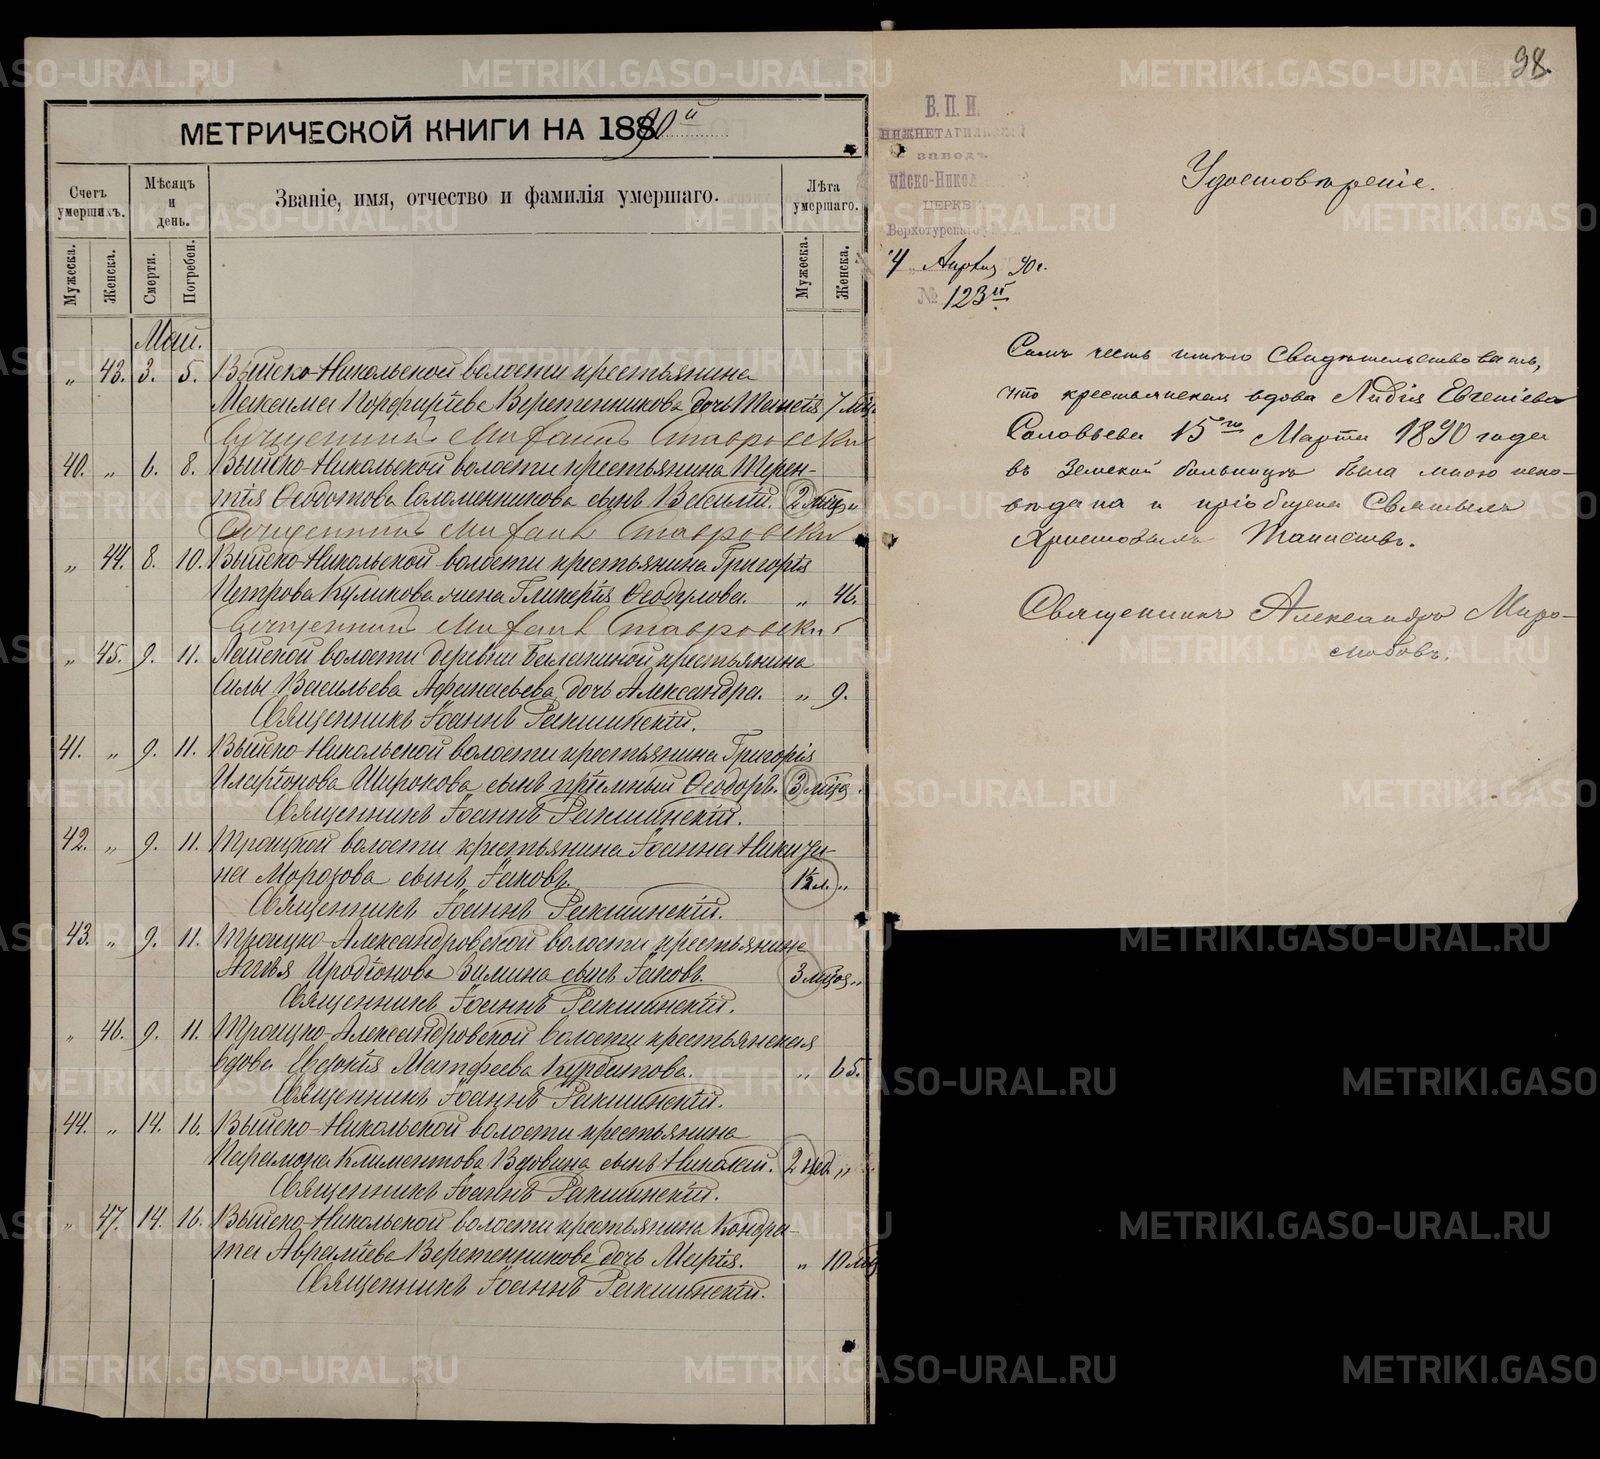 МЕТРИЧЕСКОЙ КНИГИ НА 1890й
Счетъ умершихъ.
Мѣсяцъ и день.
Званіе, имя, отчество и фамилія умершаго.
Лѣта умершаго.
Мужеска.
Женска.
Смерти.
Погребен.
Мужеска.
Женска.
Май.
„ 43. 3. 5. Выйско-Никольской волости крестьянина
Максима Порфиріева Веретенникова дочь Таисія 7 мѣс.
Священникъ Ставровскій
40. „ 6. 8. Выйско-Никольской волости крестьянина Терен-
тія Ѳеодотова Соломенникова сынъ Василій. 2 мѣс. „
Священникъ Ставровскій
„ 44. 8. 10. Выйско-Никольской волости крестьянина Григорія
Петрова Куликова жена Гликерія Ѳеодулова. „ 46.
Священникъ Ставровскій
„ 45. 9. 11. Лайской волости деревни крестьянина
Силы Васильева Афанасьева дочь Александра. „ 9.
Священникъ Іоаннъ
41. „ 9. 11. Выйско-Никольской волости крестьянина Григорія
Иларіонова Широкова сынъ пріемный Ѳеодоръ. 3 мѣс. „
Священникъ Іоаннъ
42. „ 9. 11. Троицкой волости крестьянина Іоанна Никити-
на Морозова сынъ Іаковъ. 1½ л. „
Священникъ Іоаннъ
43. „ 9. 11. Троицко-Александровской волости крестьянина
Аггея Иродіонова Зимина сынъ Іаковъ. 3 мѣс. „
Священникъ Іоаннъ
„ 46. 9. 11. Троицко-Александровской волости крестьянская
вдова Евдокія Матфеева Курбатова. „ 65.
Священникъ Іоаннъ
44. „ 14. 16. Выйско-Никольской волости крестьянина
Парамона Климентова Вдовина сынъ Николай. 2 нед. „
Священникъ Іоаннъ
„ 47. 14. 16. Выйско-Никольской волости крестьянина Кондра-
та Авраміева Веретенникова дочь Марія. „ 10 мѣс.
Священникъ Іоаннъ
98.
В.П.И.
НИЖНЕТАГИЛЬСКОЙ
заводъ
ЫЙСКО-НИКОЛ
ЦЕРКВ
Верхотурскаго
4 Апрѣля 90 г.
№ 123й
Удостовѣреніе.
Симъ честь имѣю свидѣтельствовать,
что крестьянская вдова Лидія Евгеніева
Соловьева 15го Марта 1890 года
въ Земской больницѣ была мною испо-
вѣдана и пріобщена Святыхъ
Христовыхъ Таинствъ.
Священникъ Александръ Миро-
любовъ.
METRIKI.GASO-URAL.RU